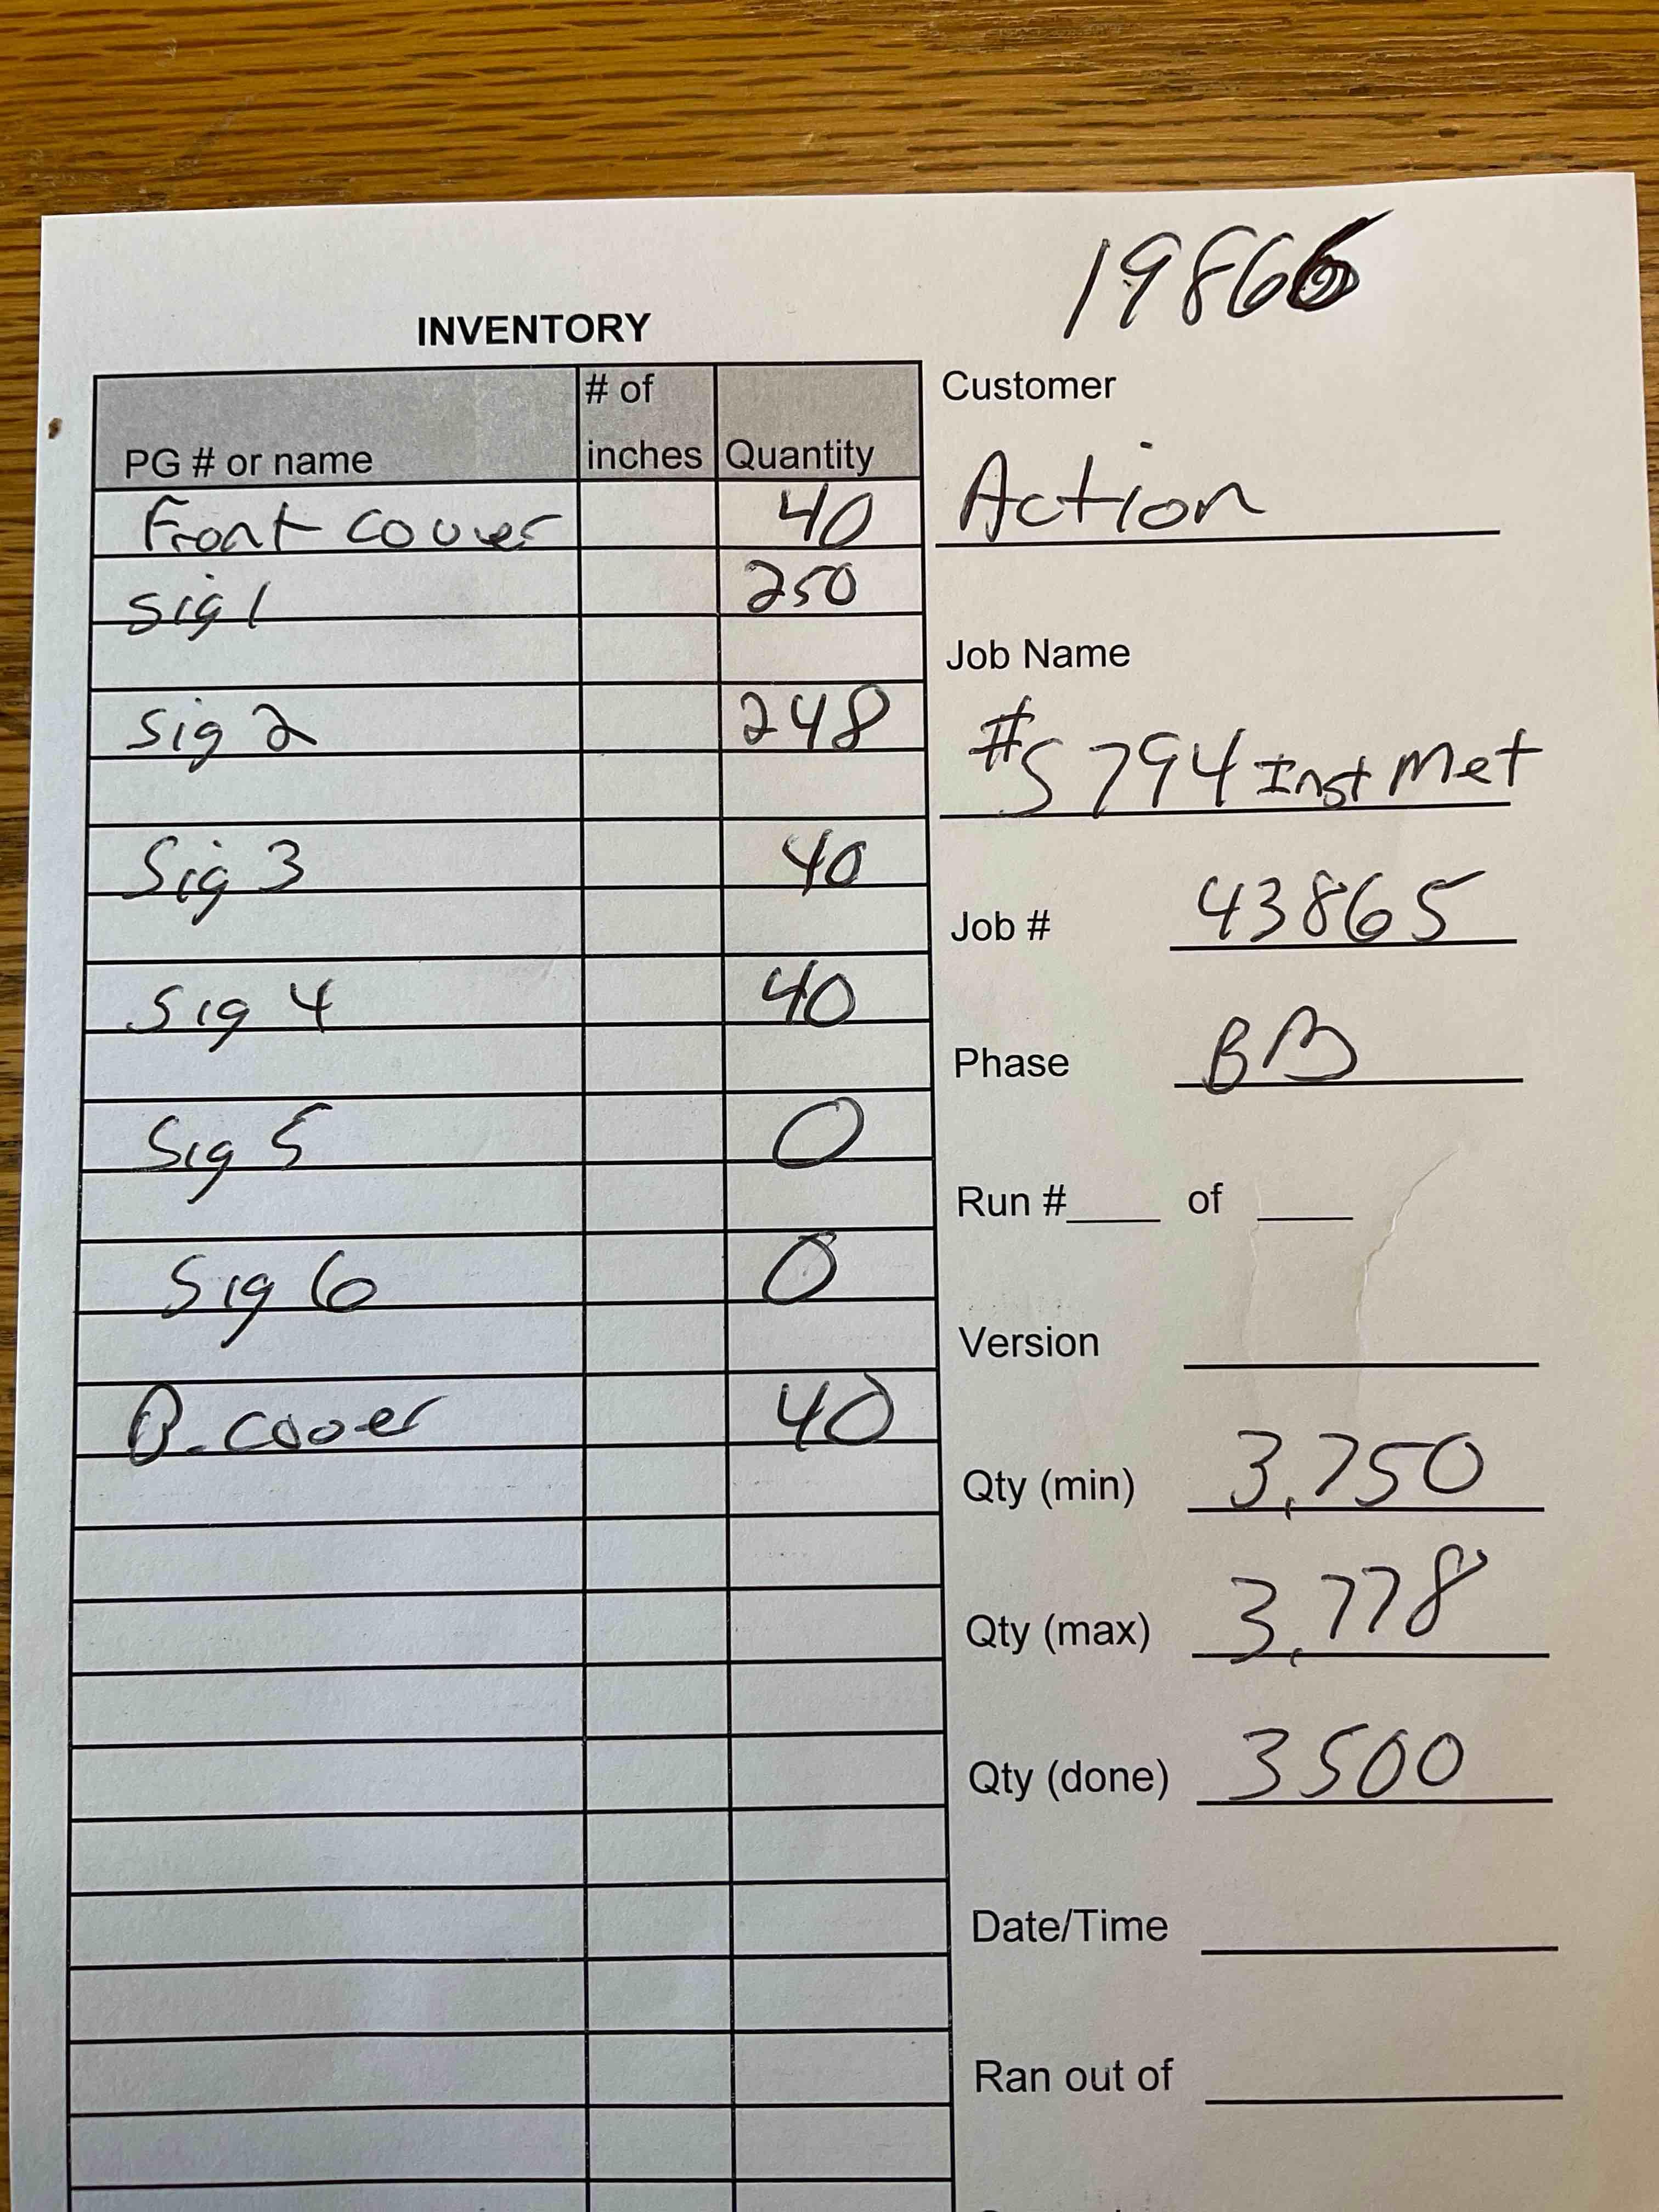 19866
INVENTORY
PG # or name # of inches Quantity
Front cover 40
Sig 1 250
Sig 2 248
Sig 3 40
Sig 4 40
Sig 5 0
Sig 6 0
B. cover 40
Customer
Action
Job Name
#5794 Inst Met
Job # 43865
Phase BB
Run #____ of ____
Version
Qty (min) 3,750
Qty (max) 3,778
Qty (done) 3500
Date/Time
Ran out of